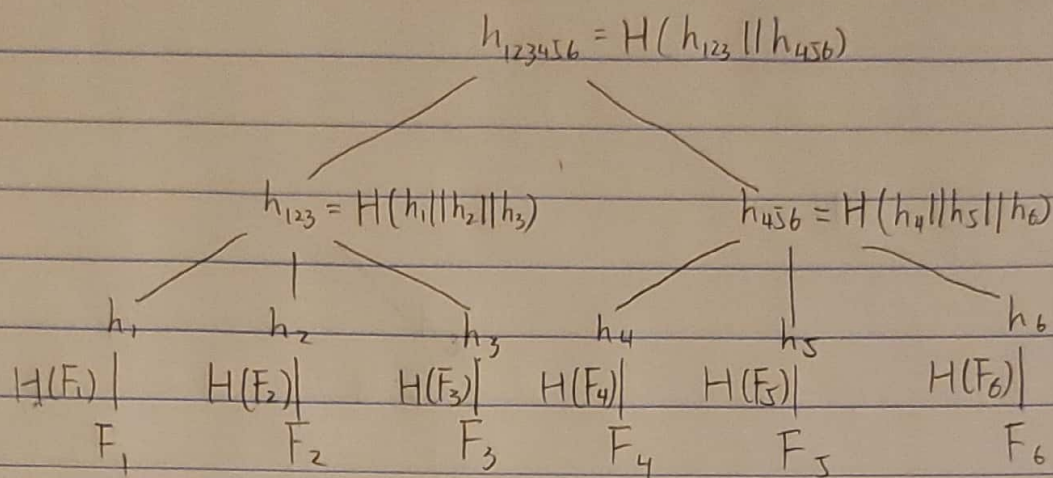 h₁₂₃₄₅₆ = H(h₁₂₃ || h₄₅₆)
h₁₂₃ = H(h₁||h₂||h₃) h₄₅₆ = H(h₄||h₅||h₆)
h₁ h₂ h₃ h₄ h₅ h₆
H(F₁) H(F₂) H(F₃) H(F₄) H(F₅) H(F₆)
F₁ F₂ F₃ F₄ F₅ F₆